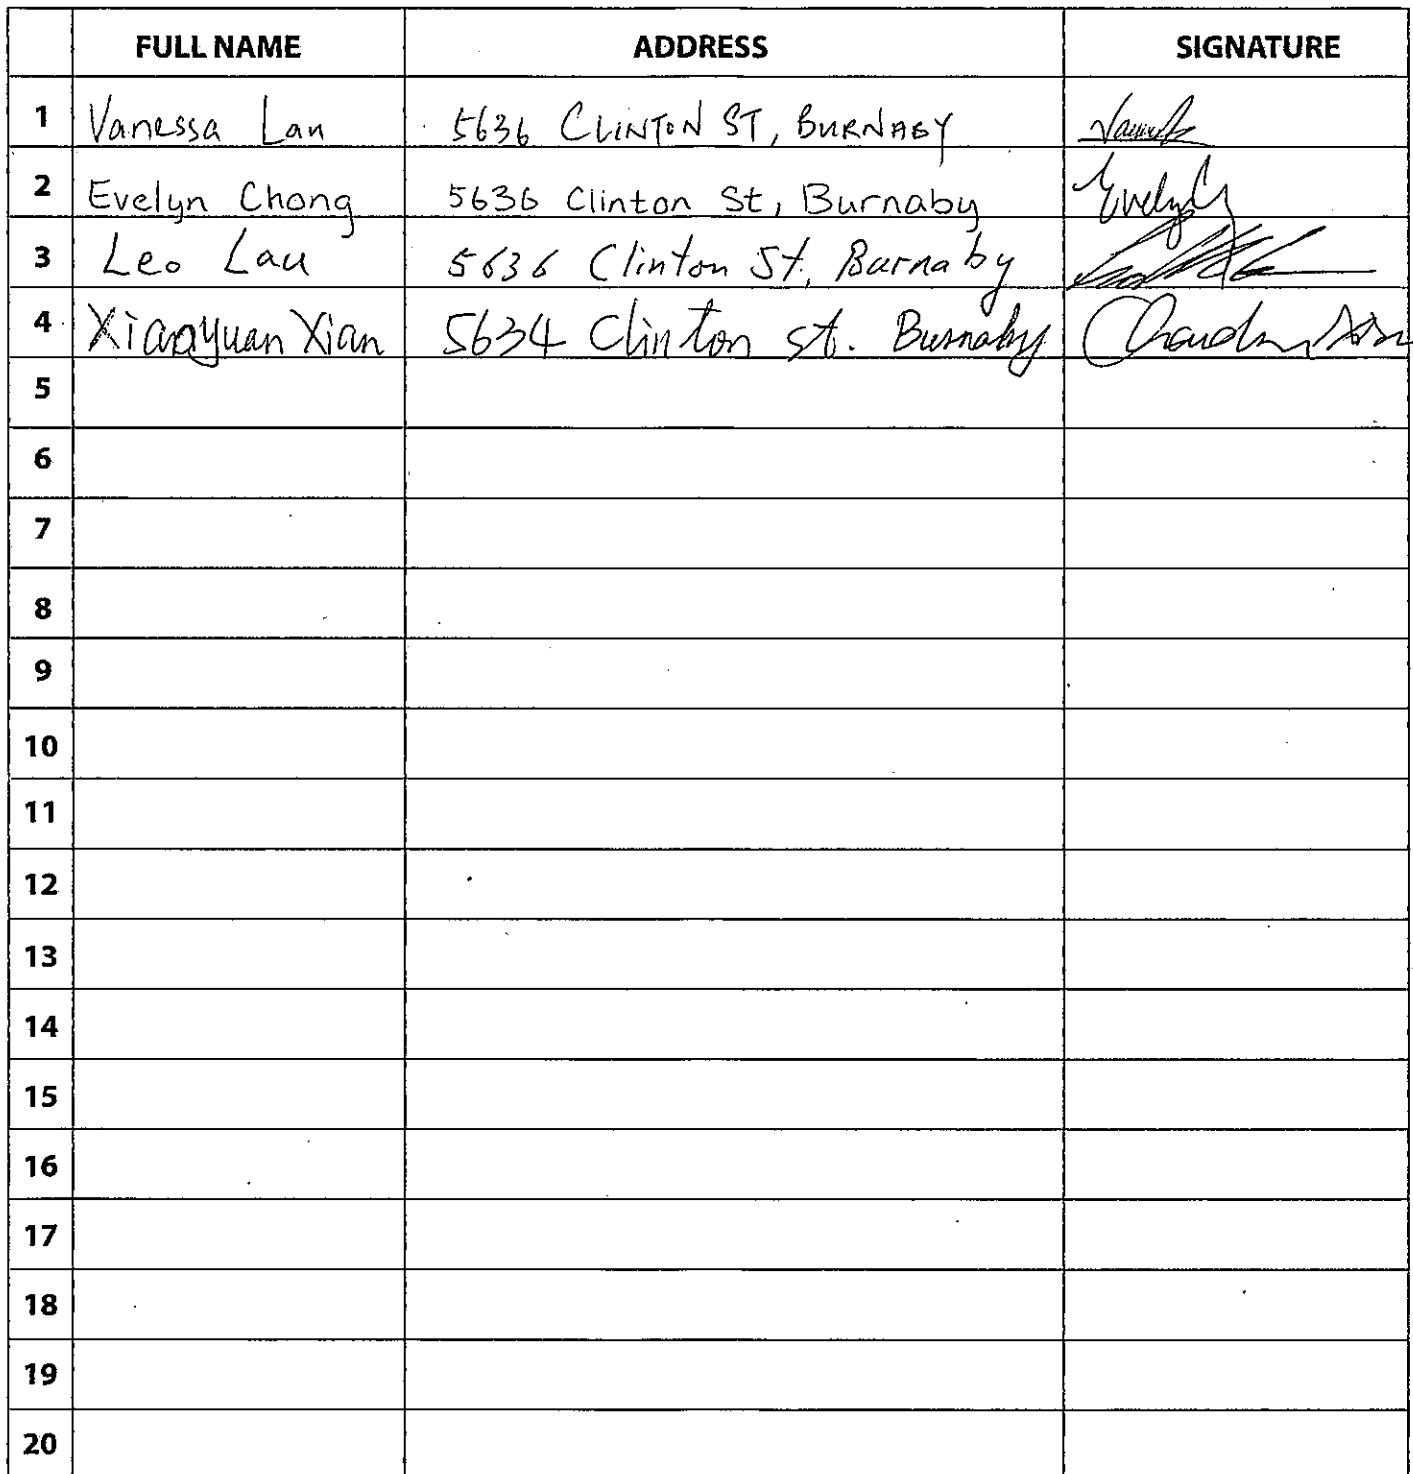 FULL NAME ADDRESS SIGNATURE
1 Vanessa Lau 5636 CLINTON ST, BURNABY
2 Evelyn Chong 5636 Clinton St, Burnaby
3 Leo Lau 5636 Clinton St, Burnaby
4 Xiaoyuan Xian 5634 Clinton st. Burnaby
5
6
7
8
9
10
11
12
13
14
15
16
17
18
19
20